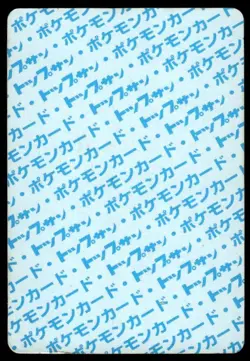 ポケモンカ
トップサン・ポケモンカード
ポケモンカード・トップサン・
トップサン・ポケモンカード・
ポケモンカード・トップサン・
トップサン・ポケモンカード・
ポケモンカード・トップサン・
トップサン・ポケモンカード・
ポケモンカード・トップサン・
トップサン・ポケモンカード・
ポケモンカード・トップサン・
トップサン・ポケモンカード・
ポケモンカード・トップサン